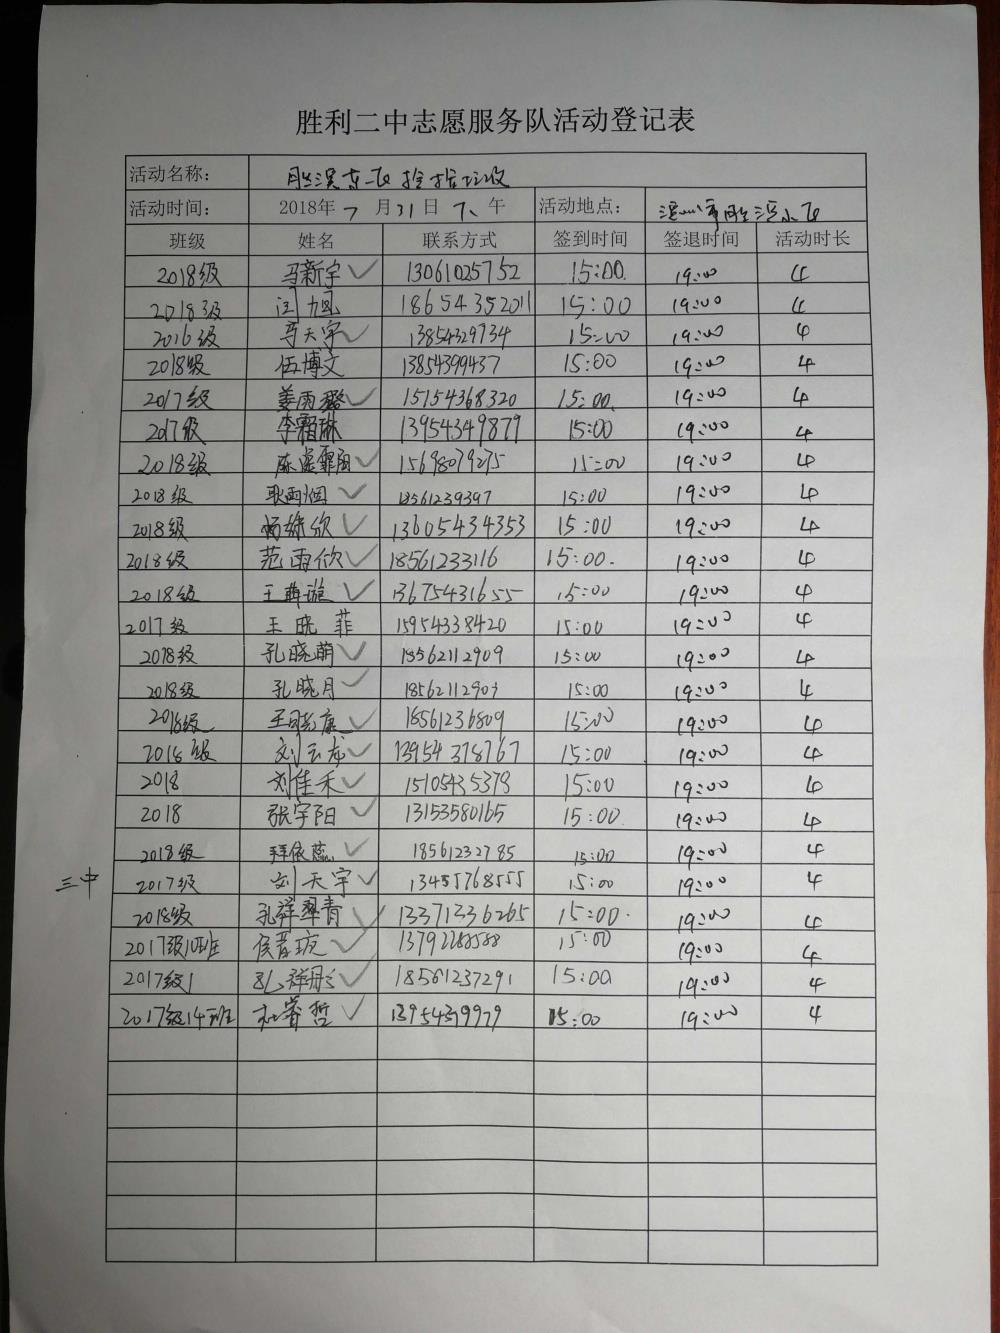 胜利二中志愿服务队活动登记表
活动名称： 捡拾垃圾
活动时间： 2018年 7 月 31 日 下 午 活动地点：
班级 姓名 联系方式 签到时间 签退时间 活动时长
2018级 马新宇 13061025752 15:00 19:00 4
2018级 闫旭 18654352011 15:00 19:00 4
2016级 马天宇 13854329734 15:00 19:00 4
2018级 伍博文 13854399437 15:00 19:00 4
2017级 姜雨璐 15154368320 15:00 19:00 4
2017级 李霜琳 13954349879 15:00 19:00 4
2018级 15698079275 15:00 19:00 4
2018级 耿雨烟 18561239397 15:00 19:00 4
2018级 杨绨欣 13605434353 15:00 19:00 4
2018级 范雨欣 18561233116 15:00 19:00 4
2018级 王舞璇 13675431655 15:00 19:00 4
2017级 王晓菲 15954338420 15:00 19:00 4
2018级 孔晓萌 18562112909 15:00 19:00 4
2018级 孔晓月 18562112909 15:00 19:00 4
2018级 王晓康 18561236809 15:00 19:00 4
2018级 刘云龙 13954378767 15:00 19:00 4
2018 刘佳禾 15105435378 15:00 19:00 4
2018 张宇阳 13153580165 15:00 19:00 4
2018级 拜依蕊 18561232785 15:00 19:00 4
三中 2017级 刘天宇 13455768555 15:00 19:00 4
2018级 孔祥翠青 13371336265 15:00 19:00 4
2017级10班 侯晋琓 13792288588 15:00 19:00 4
2017级1 孔祥彤 18561237291 15:00 19:00 4
2017级14班 杜睿哲 13954379979 15:00 19:00 4